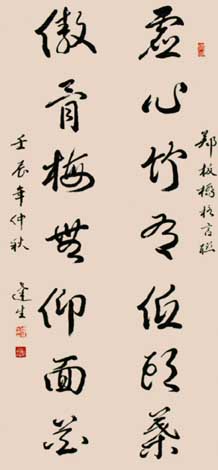 郑板桥格言联
虚心竹有低头叶
傲骨梅无仰面花
壬辰年仲秋
逢生